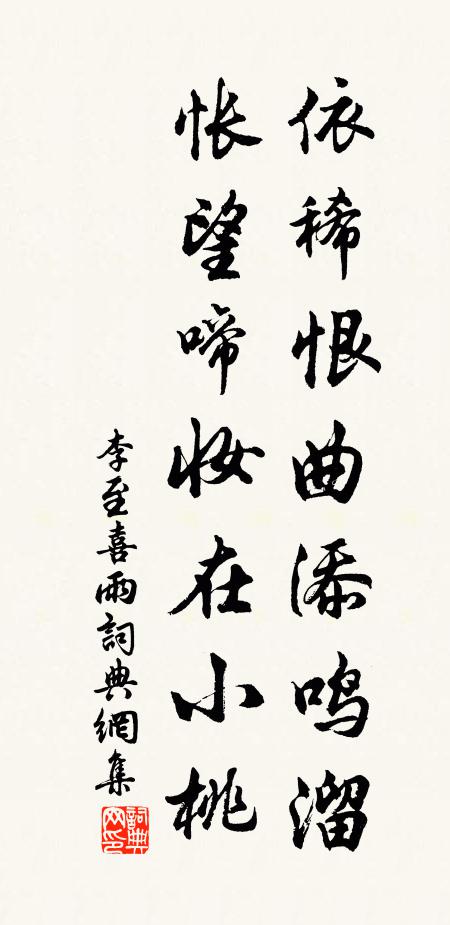 依稀恨曲添鸣溜
怅望啼妆在小桃
李至喜雨詞典網集
詞典网印